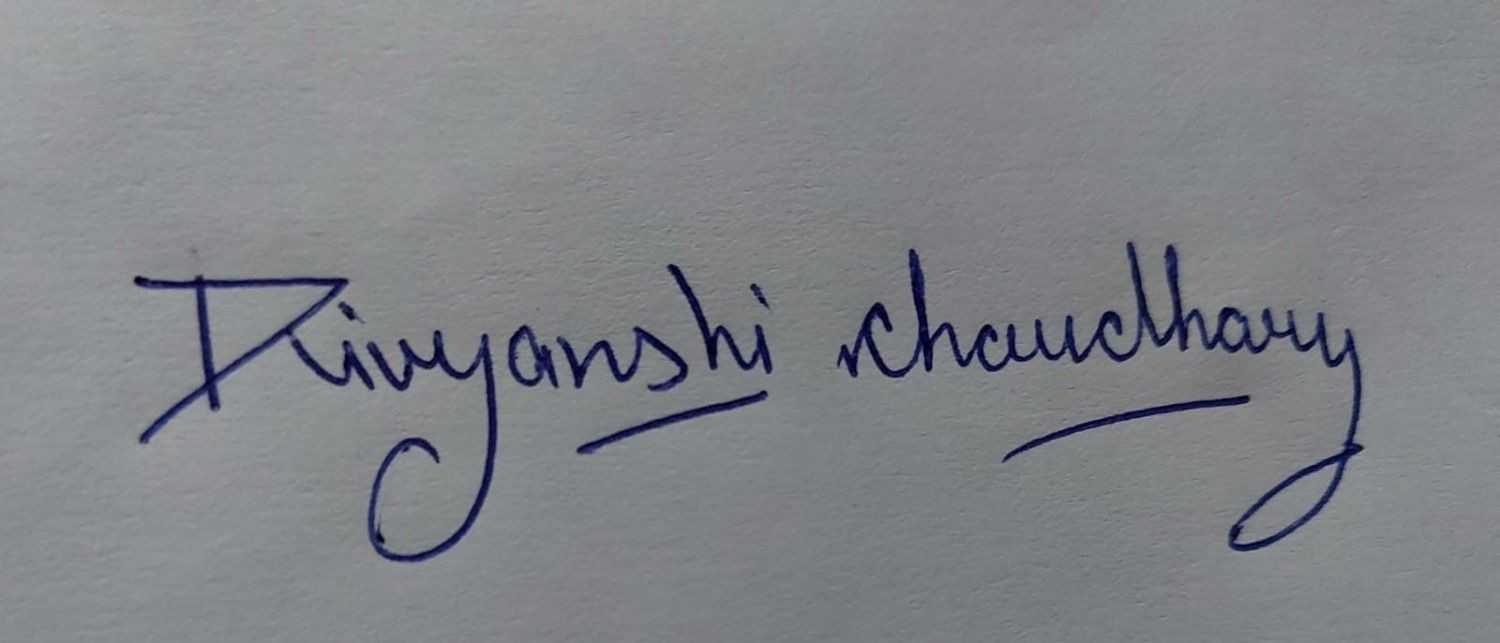 Divyanshi chaudhary